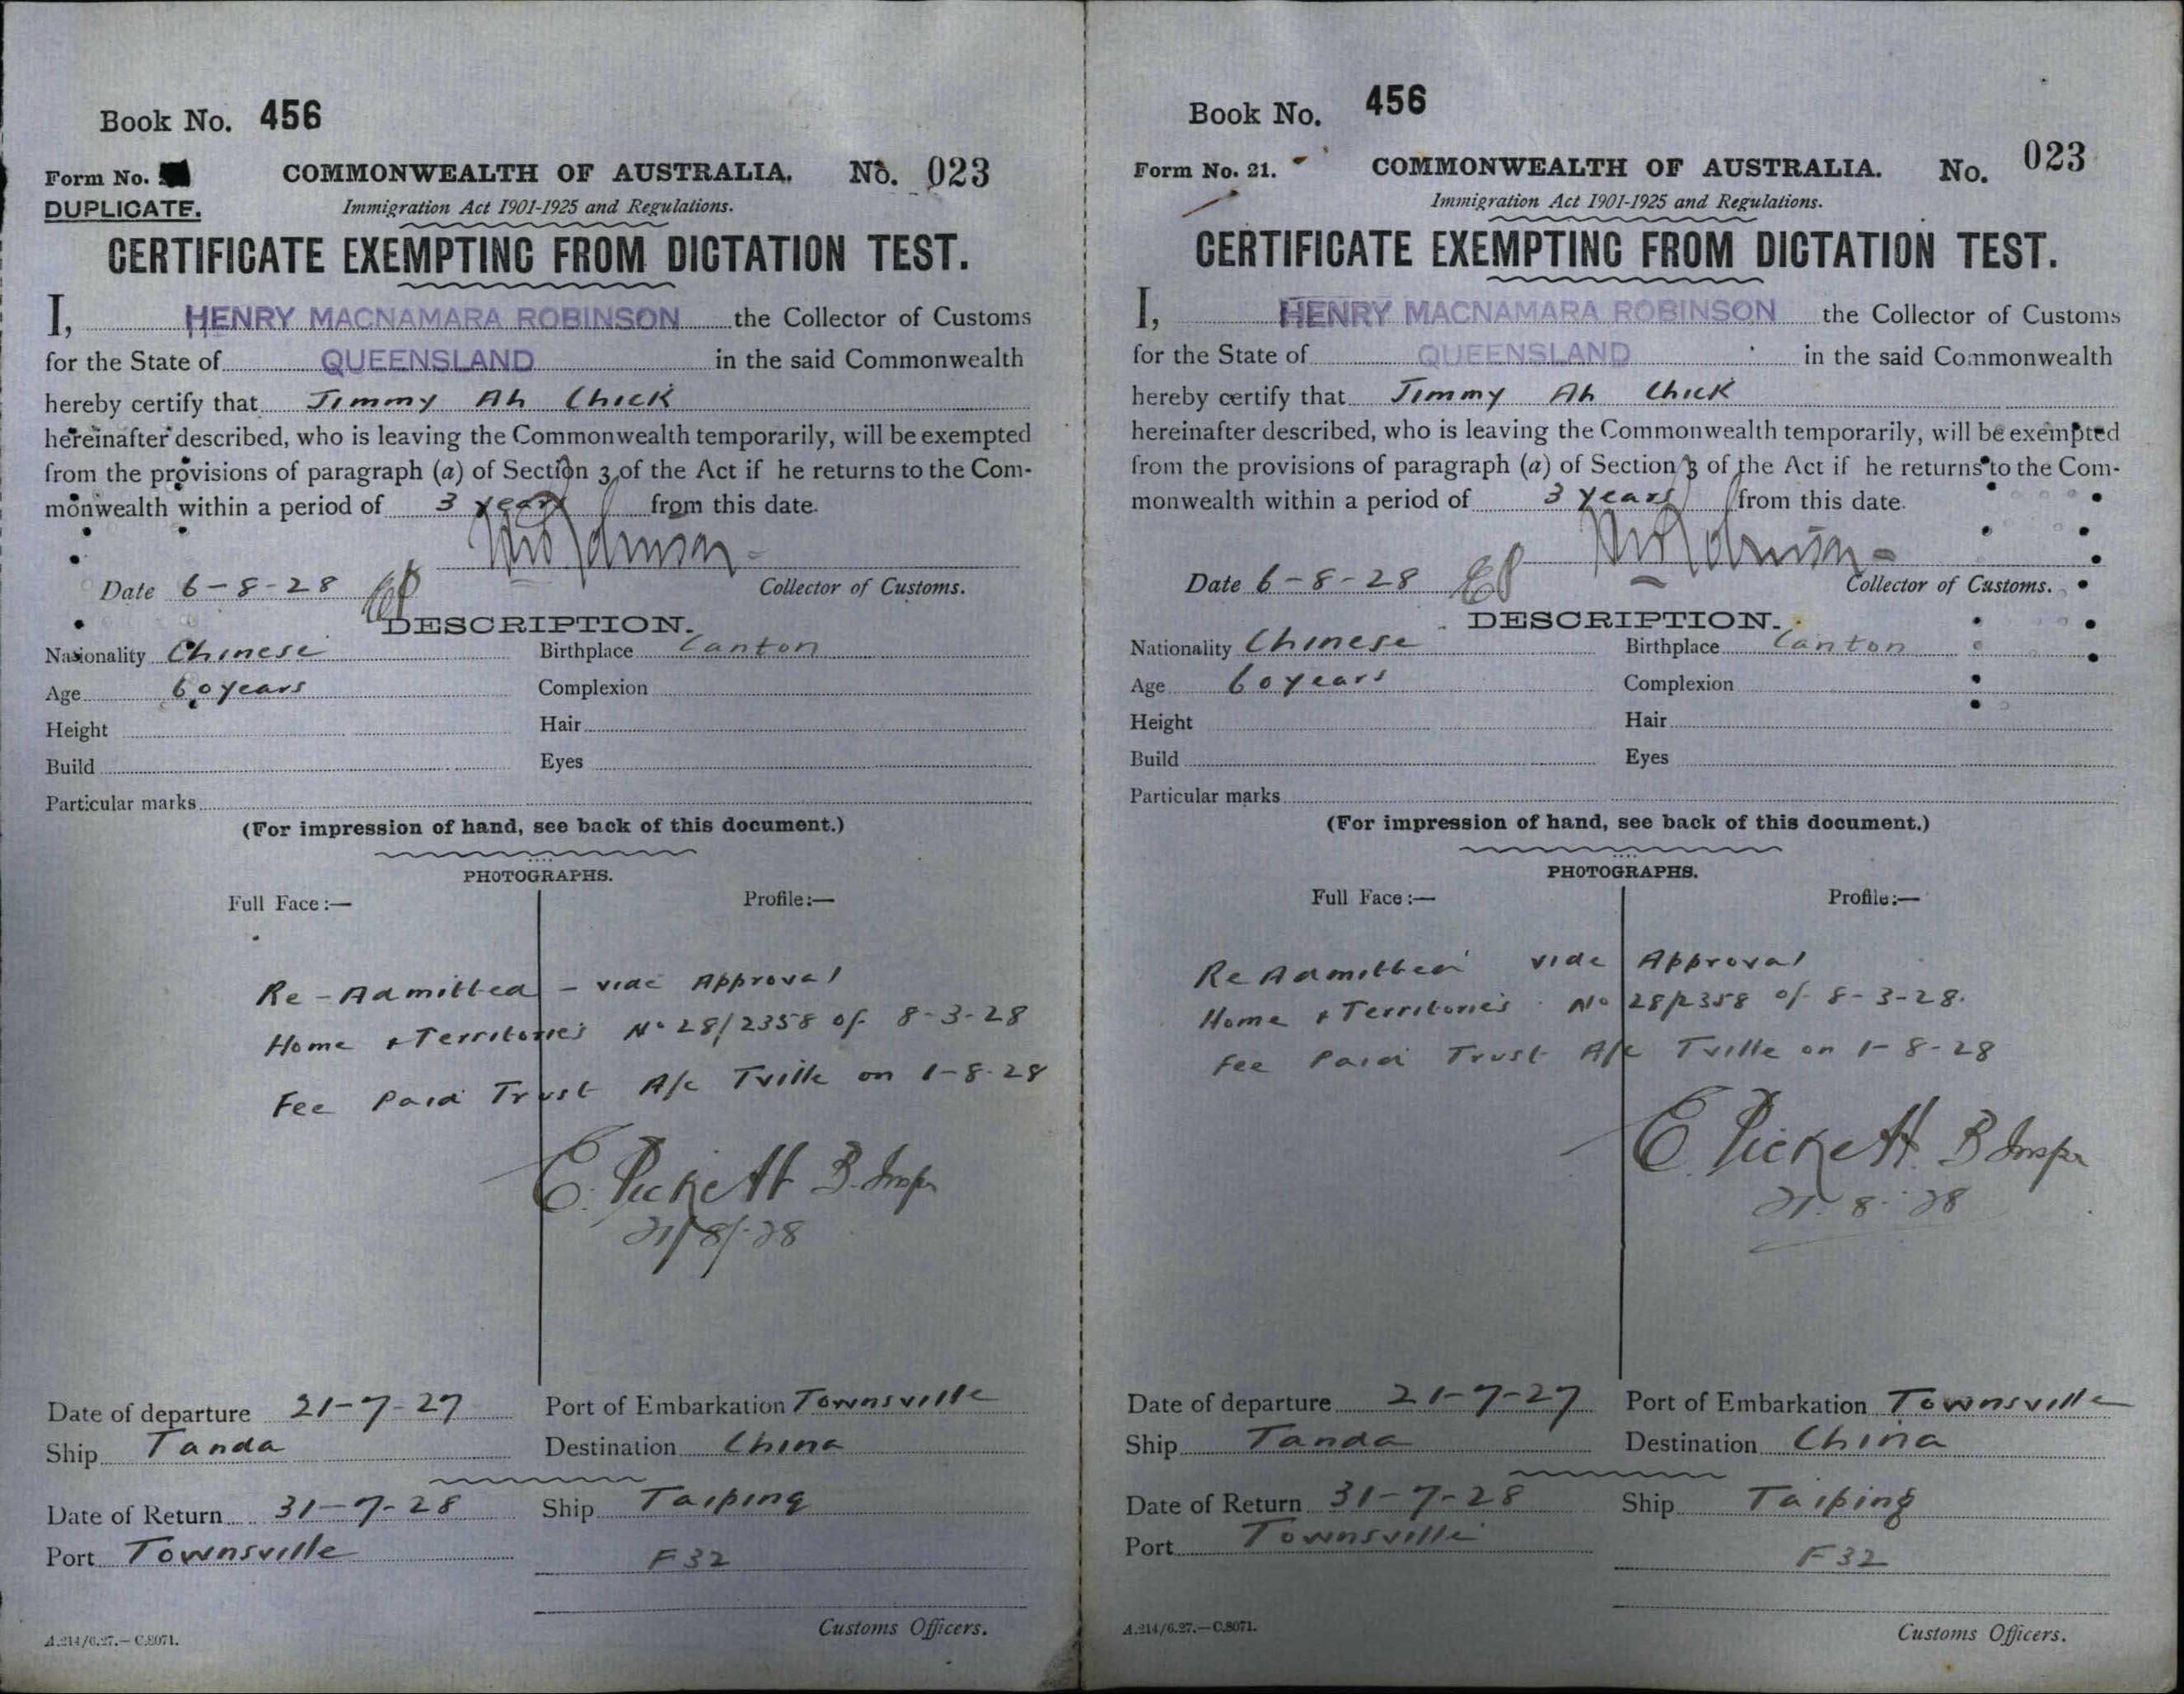 Book No. 456
Form No.
DUPLICATE.
COMMONWEALTH OF AUSTRALIA. No. 023
Immigration Act 1901-1925 and Regulations.
CERTIFICATE EXEMPTING FROM DICTATION TEST.
I, HENRY MACNAMARA ROBINSON the Collector of Customs
for the State of QUEENSLAND in the said Commonwealth
hereby certify that Jimmy Ah Chick
hereinafter described, who is leaving the Commonwealth temporarily, will be exempted
from the provisions of paragraph (a) of Section 3 of the Act if he returns to the Com-
monwealth within a period of 3 years from this date.
Date 6-8-28
Collector of Customs.
DESCRIPTION.
Nationality Chinese Birthplace Canton
Age 60 years Complexion
Height Hair
Build Eyes
Particular marks
(For impression of hand, see back of this document.)
PHOTOGRAPHS.
Full Face:— Profile:—
Re-Admitted - vide Approval
Home & Territories No 28/2358 of 8-3-28
Fee Paid Trust A/c Tville on 1-8-28
E. Pickett B. Inspr
21/8/28
Date of departure 21-7-27 Port of Embarkation Townsville
Ship Tanda Destination China
Date of Return 31-7-28 Ship Taiping
Port Townsville F32
Customs Officers.
A.214/6.27.—C.8071.
Book No. 456
Form No. 21. COMMONWEALTH OF AUSTRALIA. No. 023
Immigration Act 1901-1925 and Regulations.
CERTIFICATE EXEMPTING FROM DICTATION TEST.
I, HENRY MACNAMARA ROBINSON the Collector of Customs
for the State of QUEENSLAND in the said Commonwealth
hereby certify that Jimmy Ah Chick
hereinafter described, who is leaving the Commonwealth temporarily, will be exempted
from the provisions of paragraph (a) of Section 3 of the Act if he returns to the Com-
monwealth within a period of 3 years from this date.
Date 6-8-28
Collector of Customs.
DESCRIPTION.
Nationality Chinese Birthplace Canton
Age 60 years Complexion
Height Hair
Build Eyes
Particular marks
(For impression of hand, see back of this document.)
PHOTOGRAPHS.
Full Face:— Profile:—
Re Admitted vide Approval
Home & Territories No 28/2358 of 8-3-28.
Fee Paid Trust A/c Tville on 1-8-28
E. Pickett B Inspr
21.8.28
Date of departure 21-7-27 Port of Embarkation Townsville
Ship Tanda Destination China
Date of Return 31-7-28 Ship Taiping
Port Townsville F32
Customs Officers.
A.214/6.27.—C.8071.